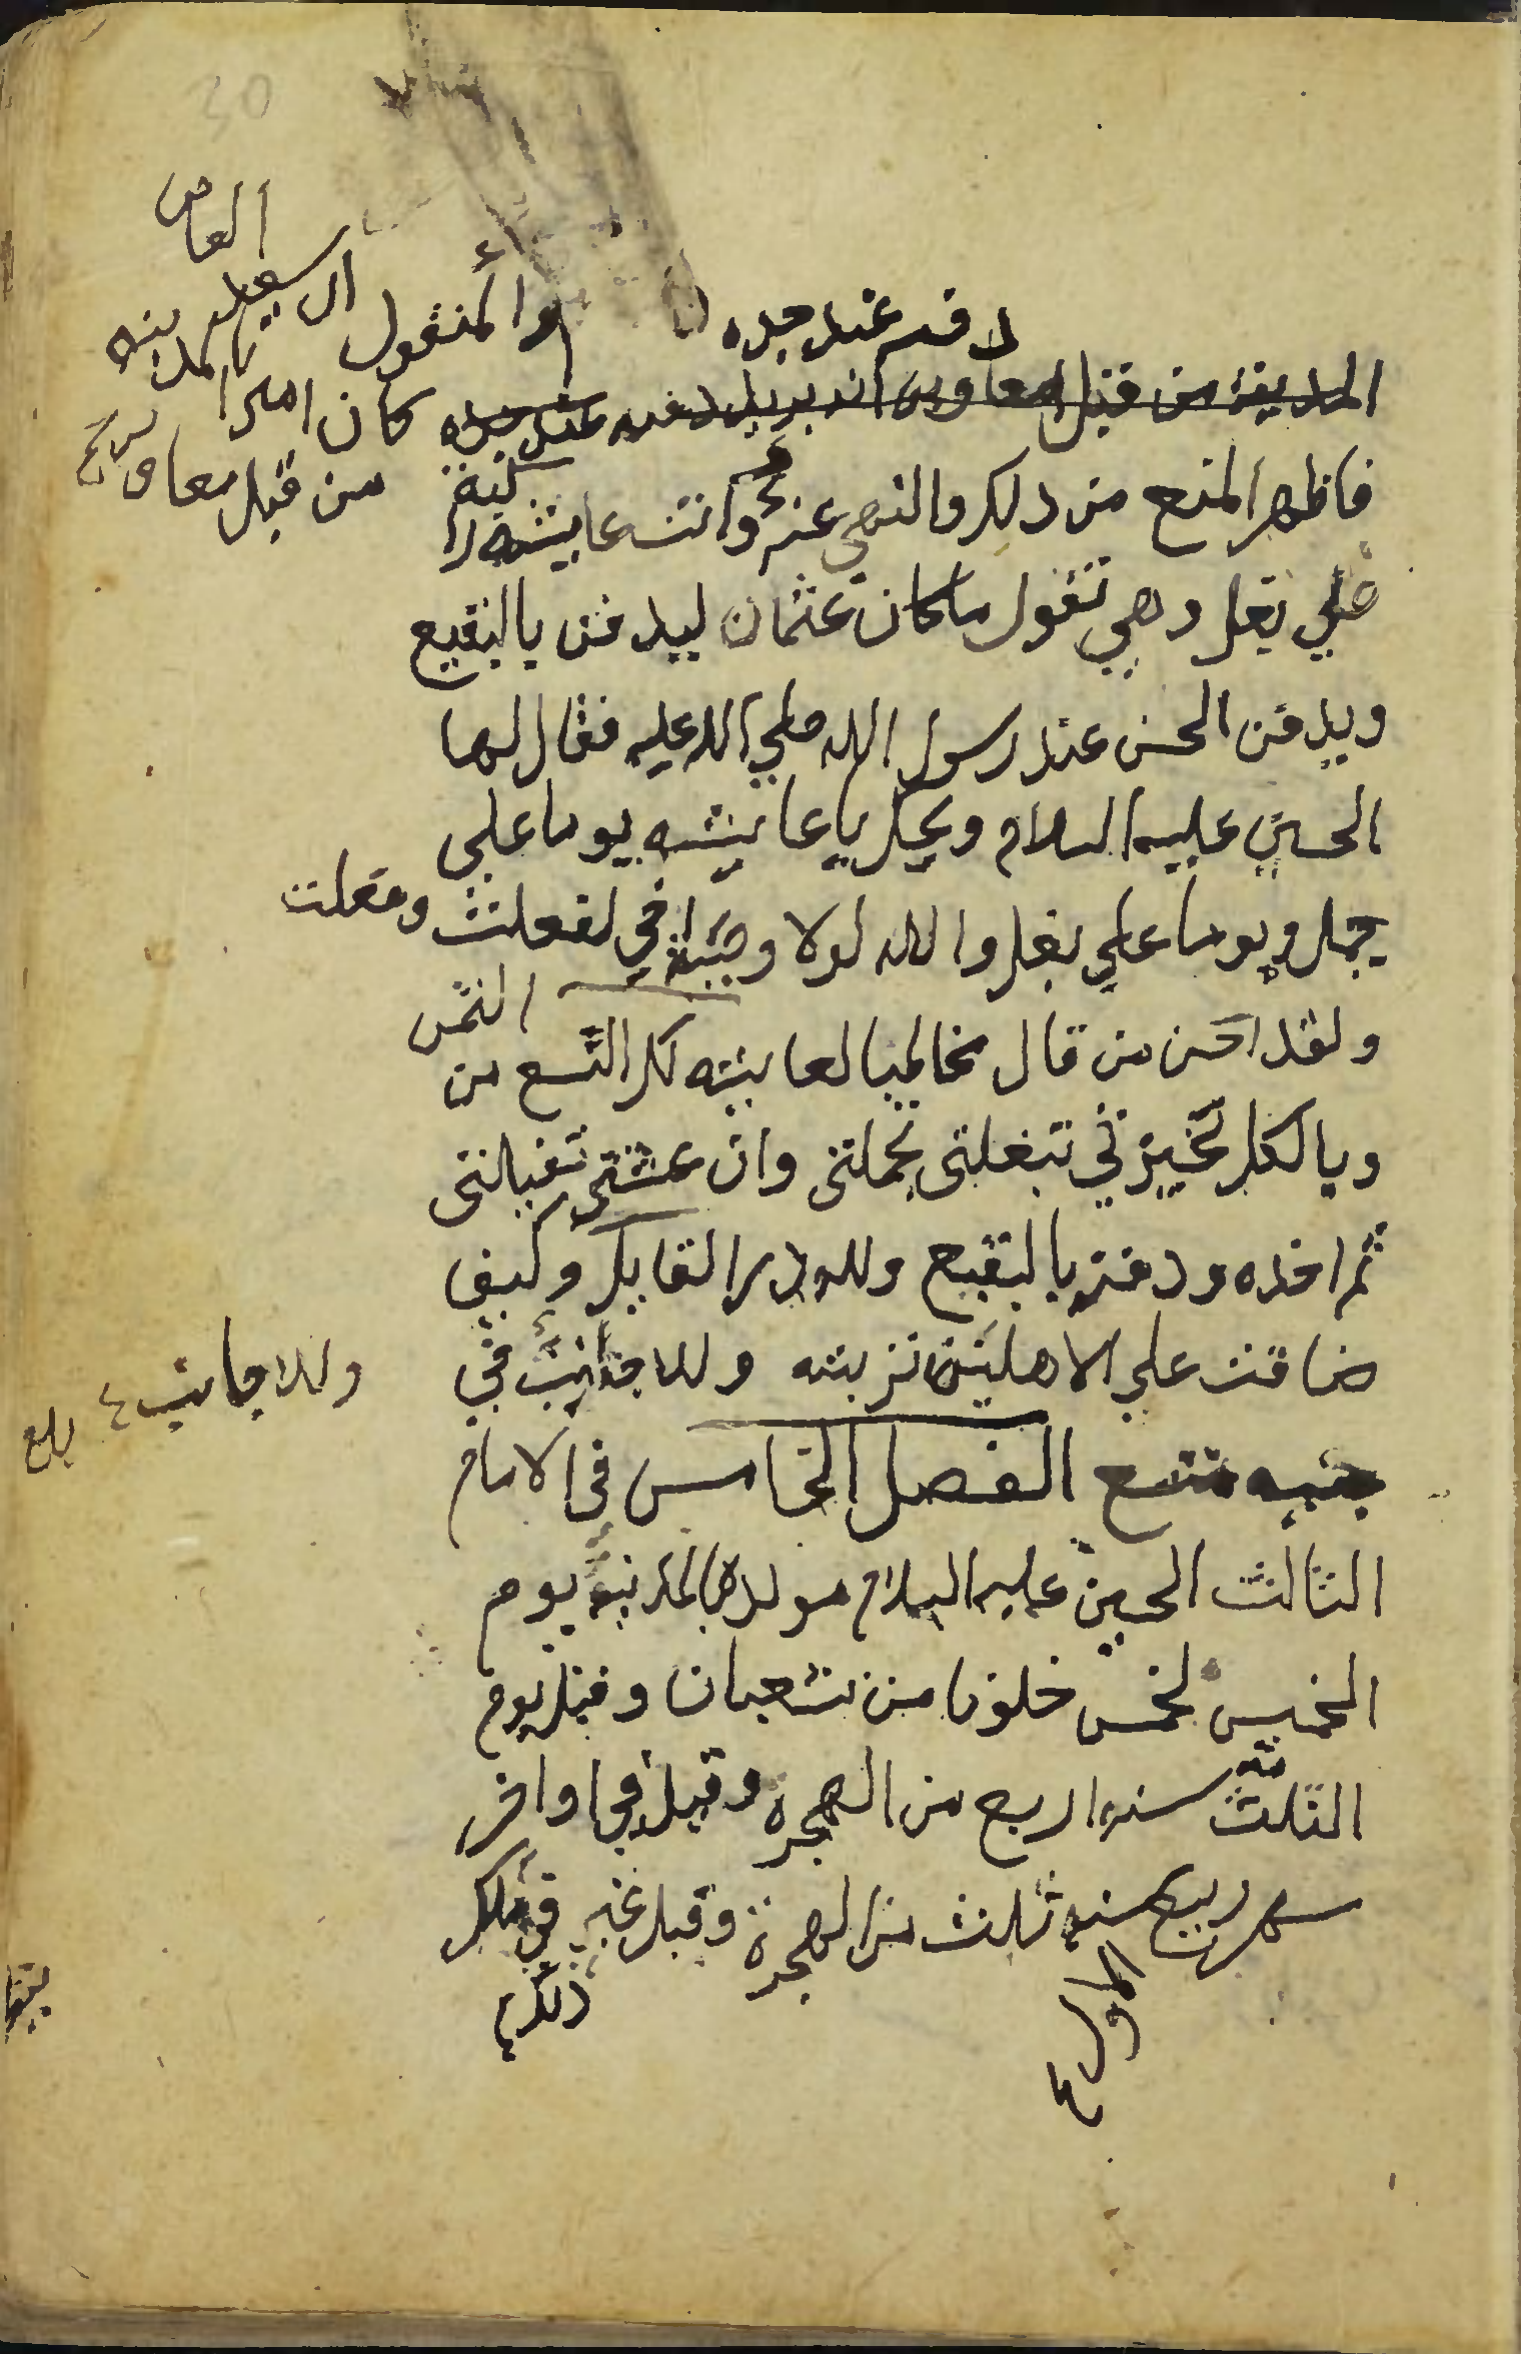 30
دفنه عند جده
المدينة من قبل معاويه انه يريد دفنه عند جده
والمنقول ان سعيد
العاص
كان اميرا بالمدينه
من قبل معاوية
فاظهر المنع من ذلك والنهي عنه واتت عايشه راكبة
علي بغل وهي تقول ما كان عثمان ليدفن بالبقيع
ويدفن الحسن عند رسول الله صلي الله عليه فقال لها
الحسين عليه السلام ويحك يا عايشه يوما علي
جمل ويوما علي بغل والله لولا وصية اخي لفعلت وفعلت
ولقد احسن من قال مخاطبا لعايشه لك التسع من الثمن
وبالكل تحيزتي تبغلتي تجملتي وان عشتي تفيلتي
ثم اخذه ودفنه بالبقيع ولله در القايل وكيف
ضاقت علي الاهلين تربته وللاجانب في
وللاجانب
بلغ
جنبه متسع الفصل الخامس في الامام
الثالث الحسين عليه السلام مولده بالمدينة يوم
الخميس لخمس خلون من شعبان وقيل يوم
الثلثه سنه اربع من الهجرة وقيل في اواخر
شهر ربيع سنه ثلث من الهجرة وقيل غير
الاول
ذلك